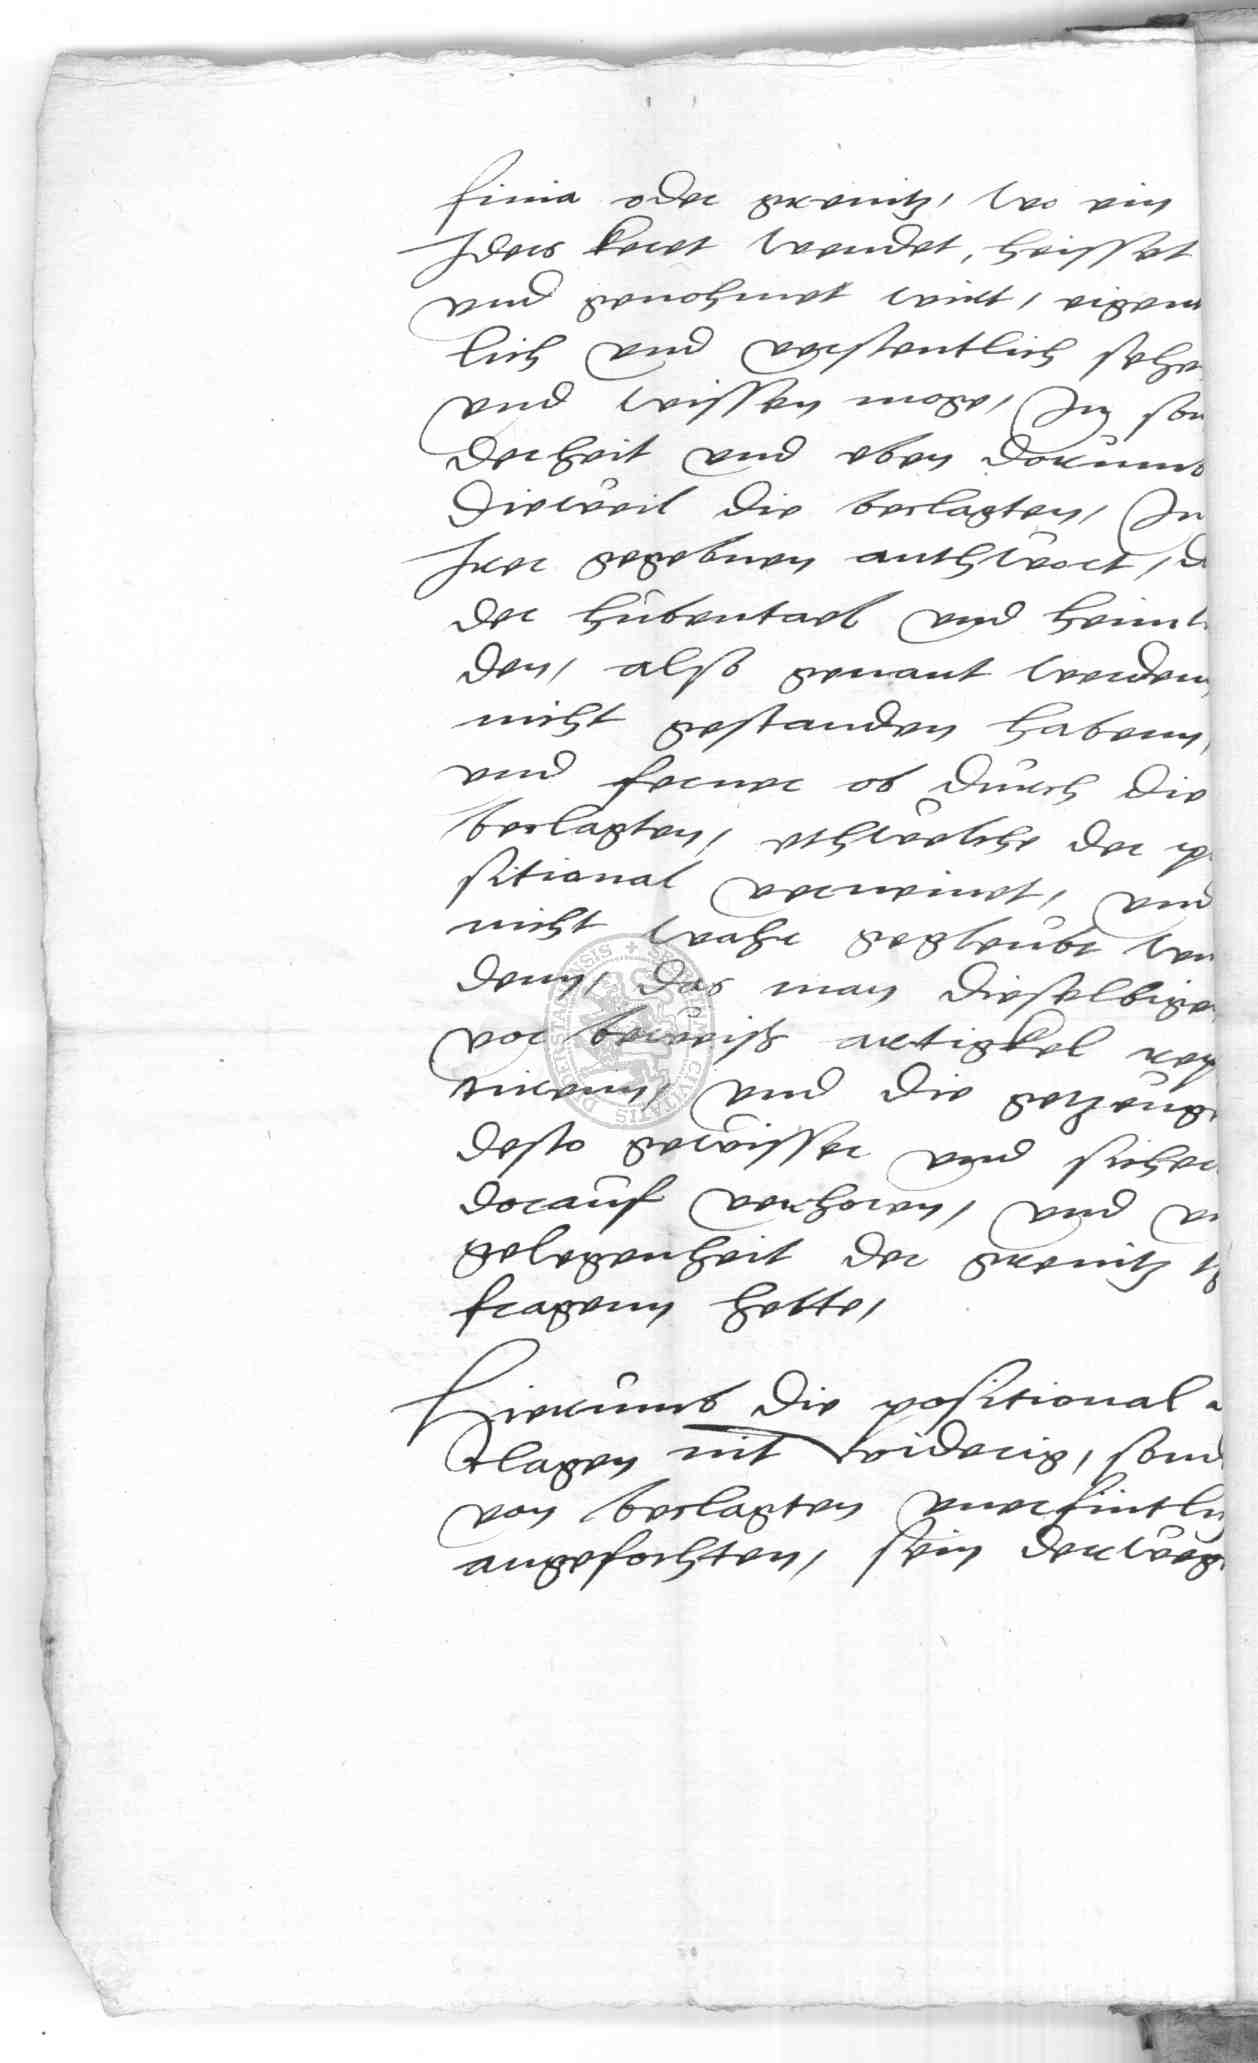 finia oder grenitz, wo ein
Jder keret wendet, heisset
und genohmet wirt, eigen
lich und verstentlich sehe
und wissen moge, In son
derheit und eben dorumb
Dieweil die beclagten, In
Jrer gegebnen anthwort,
der hubentael und heim
den, also genant werden
nicht gestanden haben,
und ferner ob durch die
beclagten, ethwelche der po
sitional verneinet, und
nicht whar gegleubt wur
denn, das man dieselbige
vor beweis artickel re
tiren, und die gezeug
desto gewisser und sicher
dorauf verhoren, und
gelegenheit der grenitz
fragenn hette,
Hierumb die positional
clagen nit widerig, sond
von beclagten unerfintli
angefochten, sein derweg
SIGILLUM CIVITATIS DUDERSTADENSIS